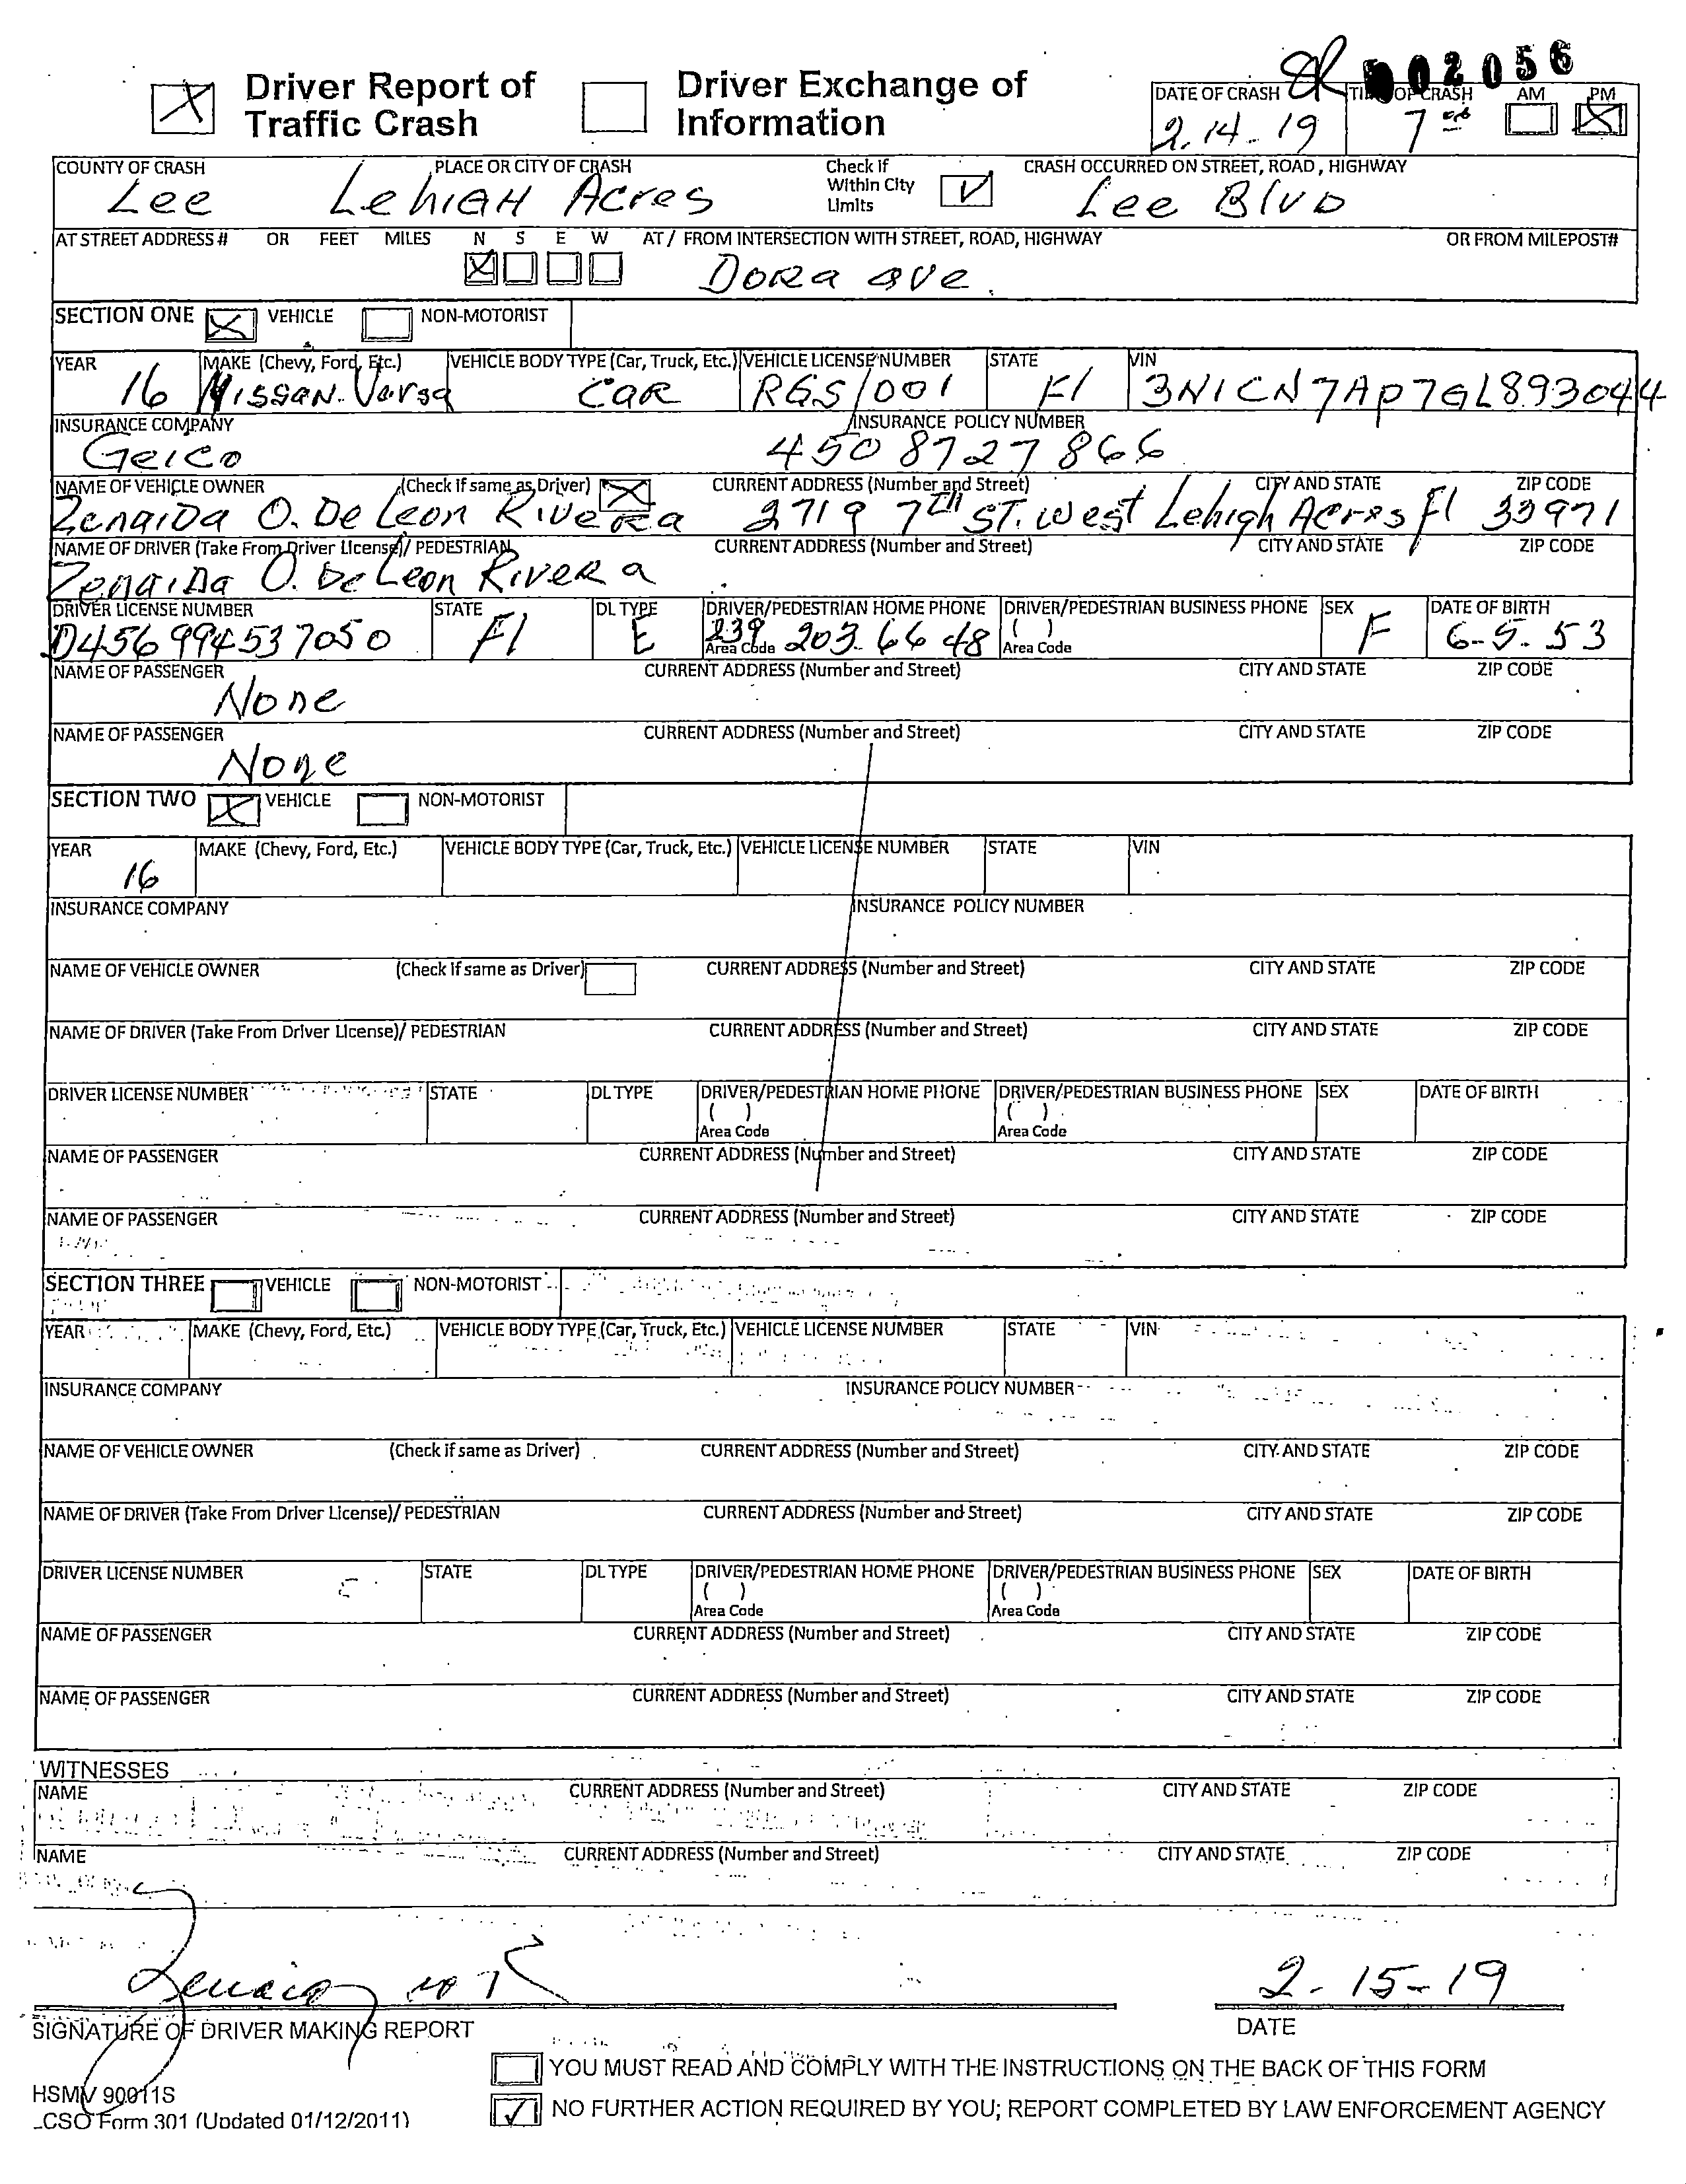 002056
Driver Report of Traffic Crash
Driver Exchange of Information
DATE OF CRASH 2.14-19
TIME OF CRASH 7 AM PM
COUNTY OF CRASH PLACE OR CITY OF CRASH Check if Within City Limits CRASH OCCURRED ON STREET, ROAD, HIGHWAY
Lee Lehigh Acres Lee Blvd
AT STREET ADDRESS # OR FEET MILES N S E W AT / FROM INTERSECTION WITH STREET, ROAD, HIGHWAY OR FROM MILEPOST#
Dora ave.
SECTION ONE VEHICLE NON-MOTORIST
YEAR MAKE (Chevy, Ford, Etc.) VEHICLE BODY TYPE (Car, Truck, Etc.) VEHICLE LICENSE NUMBER STATE VIN
16 Nissan Versa Car RGS/001 Fl 3N1CN7AP7GL893044
INSURANCE COMPANY INSURANCE POLICY NUMBER
Geico 4508727866
NAME OF VEHICLE OWNER (Check if same as Driver) CURRENT ADDRESS (Number and Street) CITY AND STATE ZIP CODE
Zenaida O. De Leon Rivera 2719 7TH ST. West Lehigh Acres Fl 33971
NAME OF DRIVER (Take From Driver License)/ PEDESTRIAN CURRENT ADDRESS (Number and Street) CITY AND STATE ZIP CODE
Zenaida O. De Leon Rivera
DRIVER LICENSE NUMBER STATE DL TYPE DRIVER/PEDESTRIAN HOME PHONE DRIVER/PEDESTRIAN BUSINESS PHONE SEX DATE OF BIRTH
D456994537050 Fl E 239 203-6648 ( ) F 6-5-53
Area Code Area Code
NAME OF PASSENGER CURRENT ADDRESS (Number and Street) CITY AND STATE ZIP CODE
None
NAME OF PASSENGER CURRENT ADDRESS (Number and Street) CITY AND STATE ZIP CODE
None
SECTION TWO VEHICLE NON-MOTORIST
YEAR MAKE (Chevy, Ford, Etc.) VEHICLE BODY TYPE (Car, Truck, Etc.) VEHICLE LICENSE NUMBER STATE VIN
16
INSURANCE COMPANY INSURANCE POLICY NUMBER
NAME OF VEHICLE OWNER (Check if same as Driver) CURRENT ADDRESS (Number and Street) CITY AND STATE ZIP CODE
NAME OF DRIVER (Take From Driver License)/ PEDESTRIAN CURRENT ADDRESS (Number and Street) CITY AND STATE ZIP CODE
DRIVER LICENSE NUMBER STATE DL TYPE DRIVER/PEDESTRIAN HOME PHONE DRIVER/PEDESTRIAN BUSINESS PHONE SEX DATE OF BIRTH
( ) ( )
Area Code Area Code
NAME OF PASSENGER CURRENT ADDRESS (Number and Street) CITY AND STATE ZIP CODE
NAME OF PASSENGER CURRENT ADDRESS (Number and Street) CITY AND STATE ZIP CODE
SECTION THREE VEHICLE NON-MOTORIST
YEAR MAKE (Chevy, Ford, Etc.) VEHICLE BODY TYPE (Car, Truck, Etc.) VEHICLE LICENSE NUMBER STATE VIN
INSURANCE COMPANY INSURANCE POLICY NUMBER
NAME OF VEHICLE OWNER (Check if same as Driver) CURRENT ADDRESS (Number and Street) CITY AND STATE ZIP CODE
NAME OF DRIVER (Take From Driver License)/ PEDESTRIAN CURRENT ADDRESS (Number and Street) CITY AND STATE ZIP CODE
DRIVER LICENSE NUMBER STATE DL TYPE DRIVER/PEDESTRIAN HOME PHONE DRIVER/PEDESTRIAN BUSINESS PHONE SEX DATE OF BIRTH
( ) ( )
Area Code Area Code
NAME OF PASSENGER CURRENT ADDRESS (Number and Street) CITY AND STATE ZIP CODE
NAME OF PASSENGER CURRENT ADDRESS (Number and Street) CITY AND STATE ZIP CODE
WITNESSES
NAME CURRENT ADDRESS (Number and Street) CITY AND STATE ZIP CODE
NAME CURRENT ADDRESS (Number and Street) CITY AND STATE ZIP CODE
2-15-19
SIGNATURE OF DRIVER MAKING REPORT DATE
YOU MUST READ AND COMPLY WITH THE INSTRUCTIONS ON THE BACK OF THIS FORM
HSMV 90011S
NO FURTHER ACTION REQUIRED BY YOU; REPORT COMPLETED BY LAW ENFORCEMENT AGENCY
LCSO Form 301 (Updated 01/12/2011)